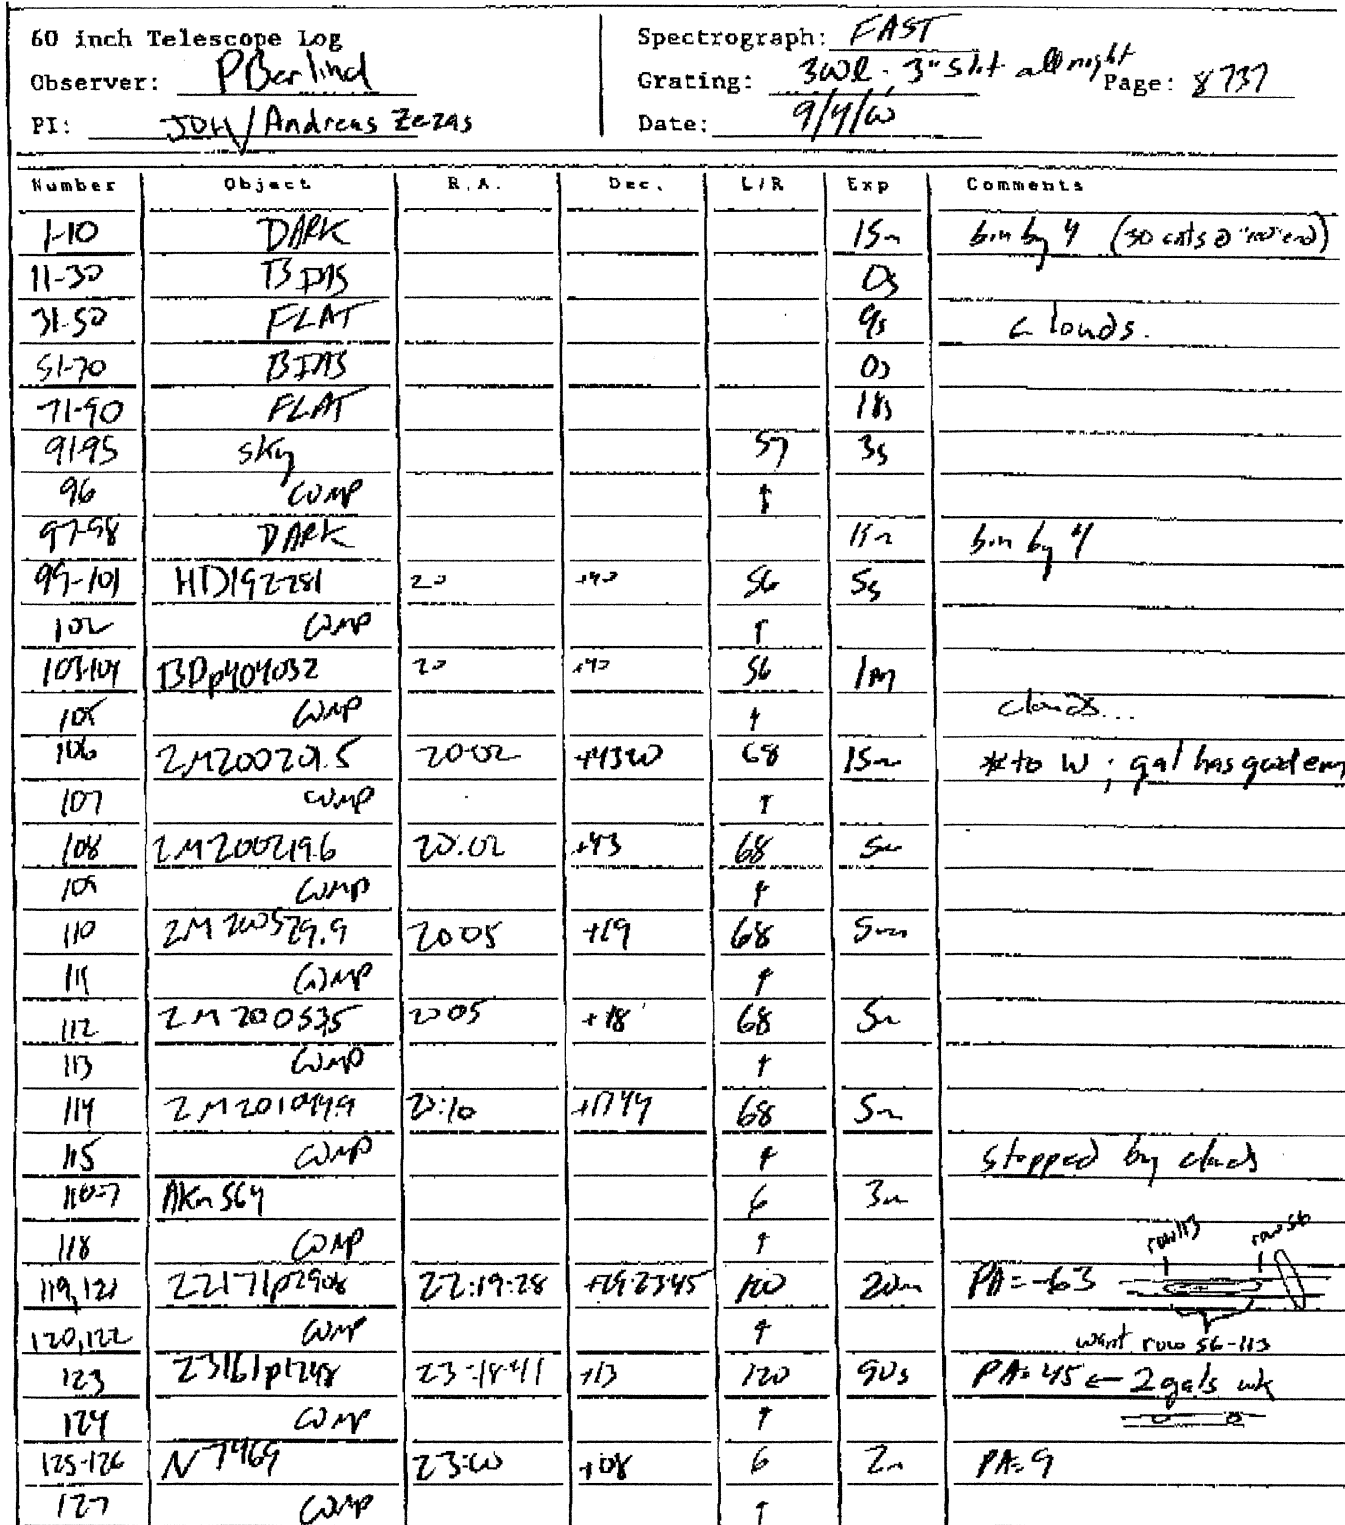 60 inch Telescope Log
Spectrograph: FAST
Observer: PBerlind
Grating: 300l - 3" slit all night
Page: 8737
PI: JDH/Andreas Zezas
Date: 9/4/00
Number Object R.A. Dec. L/R Exp Comments
1-10 DARK 15m bin by 4 (30 cnts @ "red" end)
11-30 BIAS 0s
31-50 FLAT 9s clouds.
51-70 BIAS 0s
71-90 FLAT 18s
91-95 sky 57 3s
96 COMP ↑
97-98 DARK 15m bin by 4
99-101 HD192281 20 +40 56 5s
102 COMP ↑
103-104 BDp404032 20 +40 56 1m
105 COMP ↑ clouds...
106 2M200201.5 20:02 +4320 68 15m * to W; gal has good em
107 COMP ↑
108 2M200219.6 20:02 +43 68 5m
109 COMP ↑
110 2M200529.9 20:05 +19 68 5m
111 COMP ↑
112 2M200535 20:05 +18 68 5m
113 COMP ↑
114 2M201049.9 20:10 +1744 68 5m
115 COMP ↑ stopped by clouds
116-7 AKn564 6 3m
118 COMP ↑ row 113 row 56
119,121 22171p2908 22:19:28 +29:23:45 120 20m PA=-63
120,122 COMP ↑ want row 56-113
123 23161p1248 23:18:41 +13 120 90s PA=45 ← 2 gals wk
124 COMP ↑
125-126 N7469 23:00 +08 6 2m PA=9
127 COMP ↑